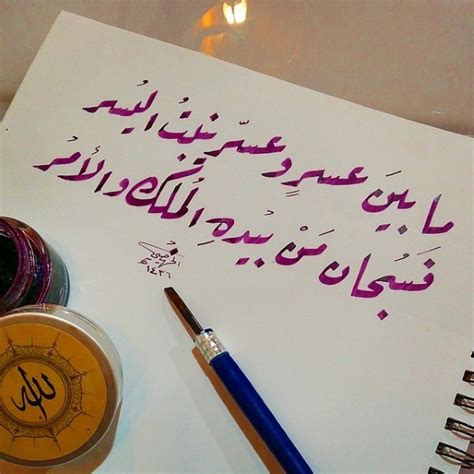 ما بينَ عسرٍ وعسرٍ ينبتُ اليُسر
فَسُبحان مَنْ بيَدهِ المُلك والأمرُ
١٤٣٦ھ
الله